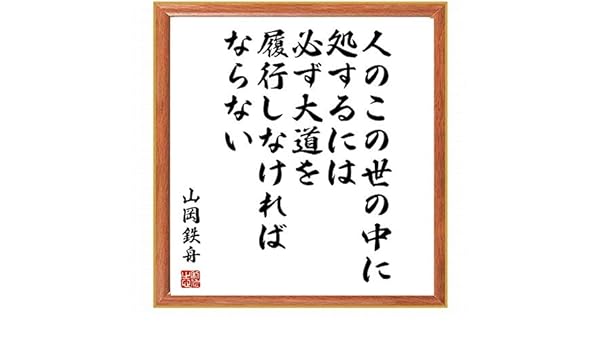 人のこの世の中に
処するには
必ず大道を
履行しなければ
ならない
山岡鉄舟